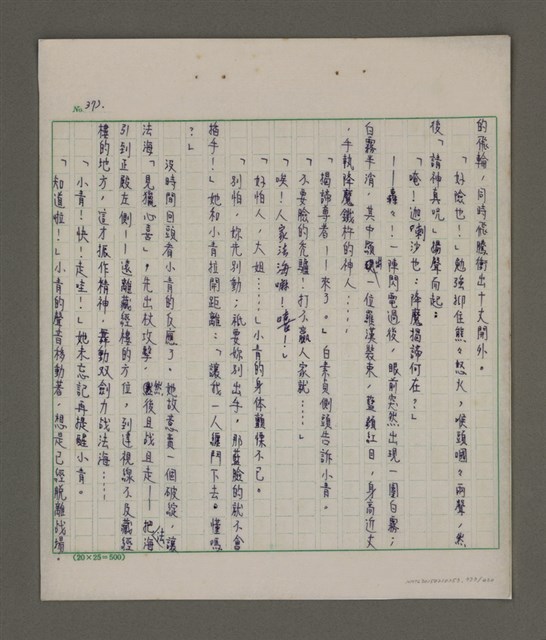 No. 373.
的飛輪，同時飛騰衝出十丈開外。
「好險也！」勉強抑住熊々怒火，喉頭嘓々兩聲，然
後「請神真吮」揚聲向起：
「唵！迦喇沙也：降魔揭諦何在？」
——轟々！一陣閃電過後，眼前突然出現一團白霧；
白霧半消，其中顯現一位羅漢裝束，藍顏紅目，身高近丈
，手執降魔鐵杵的神人……
「揭諦尊者！——來了。」白素貞側頭告訴小青。
「不要臉的禿驢！打不贏人家就……」
「唉！人家法海嘛！嘻！」
「好怕人，大姐……」小青的身体顫慄不已。
「別怕，妳先別動；祇要妳別出手，那藍臉的就不會
插手！」她和小青拉開距離：「讓我一人纏鬥下去。懂嗎
？」
沒時間回頭看小青的反應了。她故意賣一個破綻，讓
法海「見獵心喜」，先出杖攻擊，然後且战且走——把法海
引到正殿左側——遠離藏經樓的方位，到達視線不及藏經
樓的地方，這才振作精神，舞動双劍力战法海……
「小青！快！走哇！」她未忘記再提醒小青。
「知道啦！」小青的聲音移動著，想是已經脫離战場。
(20×25=500)